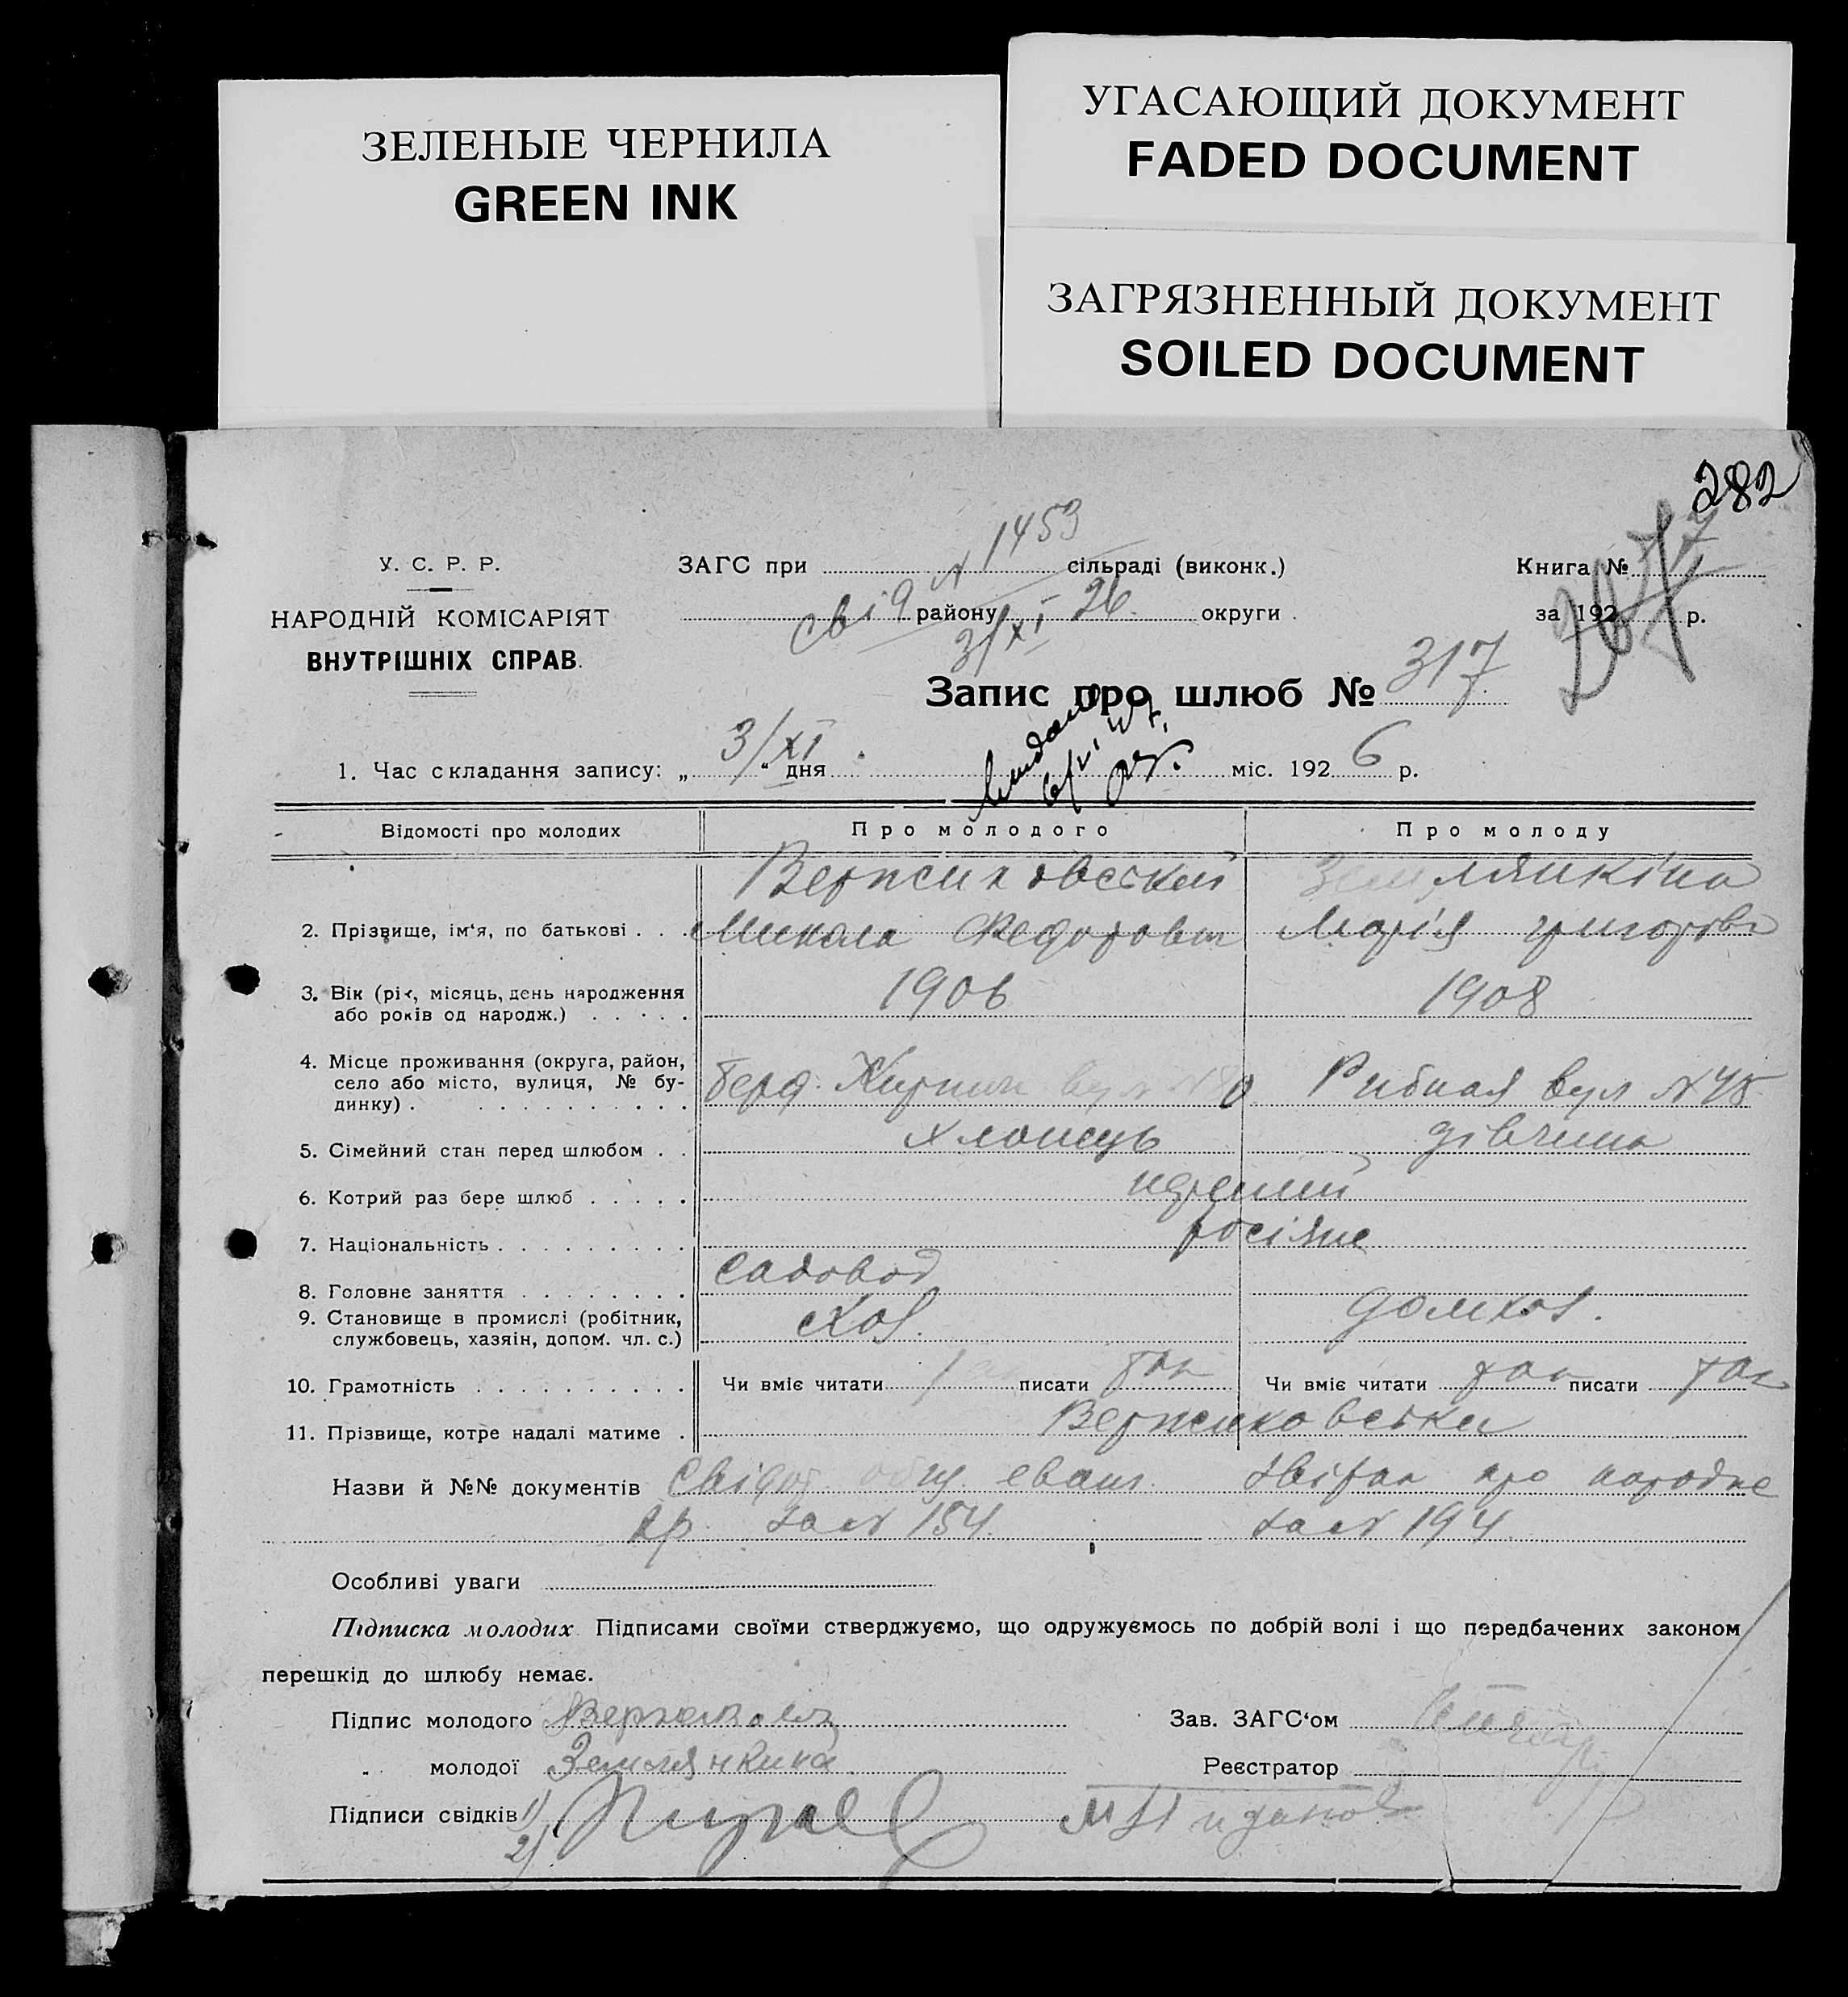 ЗЕЛЕНЫЕ ЧЕРНИЛА
GREEN INK
УГАСАЮЩИЙ ДОКУМЕНТ
FADED DOCUMENT
ЗАГРЯЗНЕННЫЙ ДОКУМЕНТ
SOILED DOCUMENT
282
У. С. Р. Р.
НАРОДНІЙ КОМІСАРІЯТ
ВНУТРІШНІХ СПРАВ.
ЗАГС при N 1453 сільраді (виконк.)
свід району 3/XI 26 округи
Книга №
за 192 р.
Запис про шлюб № 317
1. Час складання запису: „ 3/XI “ дня міс. 1926 р.
Відомості про молодих
Про молодого
Про молоду
2. Прізвище, ім‘я, по батькові . . .
Микола Федорович
Землянкіна
Марія Григорівн
3. Вік (рік, місяць, день народження
або років од народж.) . . . . .
1906
1908
4. Місце проживання (округа, район,
село або місто, вулиця, № бу-
динку) . . . . . . . . . . .
Берд. вул N
Рибная вул N 45
5. Сімейний стан перед шлюбом . .
хлопець
дівчина
6. Котрий раз бере шлюб . . . . .
перший
7. Національність . . . . . . . . .
росіяне
8. Головне заняття . . . . . . . .
садовод
9. Становище в промислі (робітник,
службовець, хазяїн, допом. чл. с.)
Хоз.
домхоз.
10. Грамотність . . . . . . . . . . .
Чи вміє читати писати так
Чи вміє читати так писати так
11. Прізвище, котре надалі матиме .
Вержиковські
Назви й №№ документів Свідоц. общ. еванг.
про народже
хр. за N 154.
за N 194
Особливі уваги
Підписка молодих. Підписами своїми стверджуємо, що одружуємось по добрій волі і що передбачених законом
перешкід до шлюбу немає.
Підпис молодого
Зав. ЗАГС‘ом
„ молодої Землянкина
Реєстратор
Підписи свідків 1)
2)